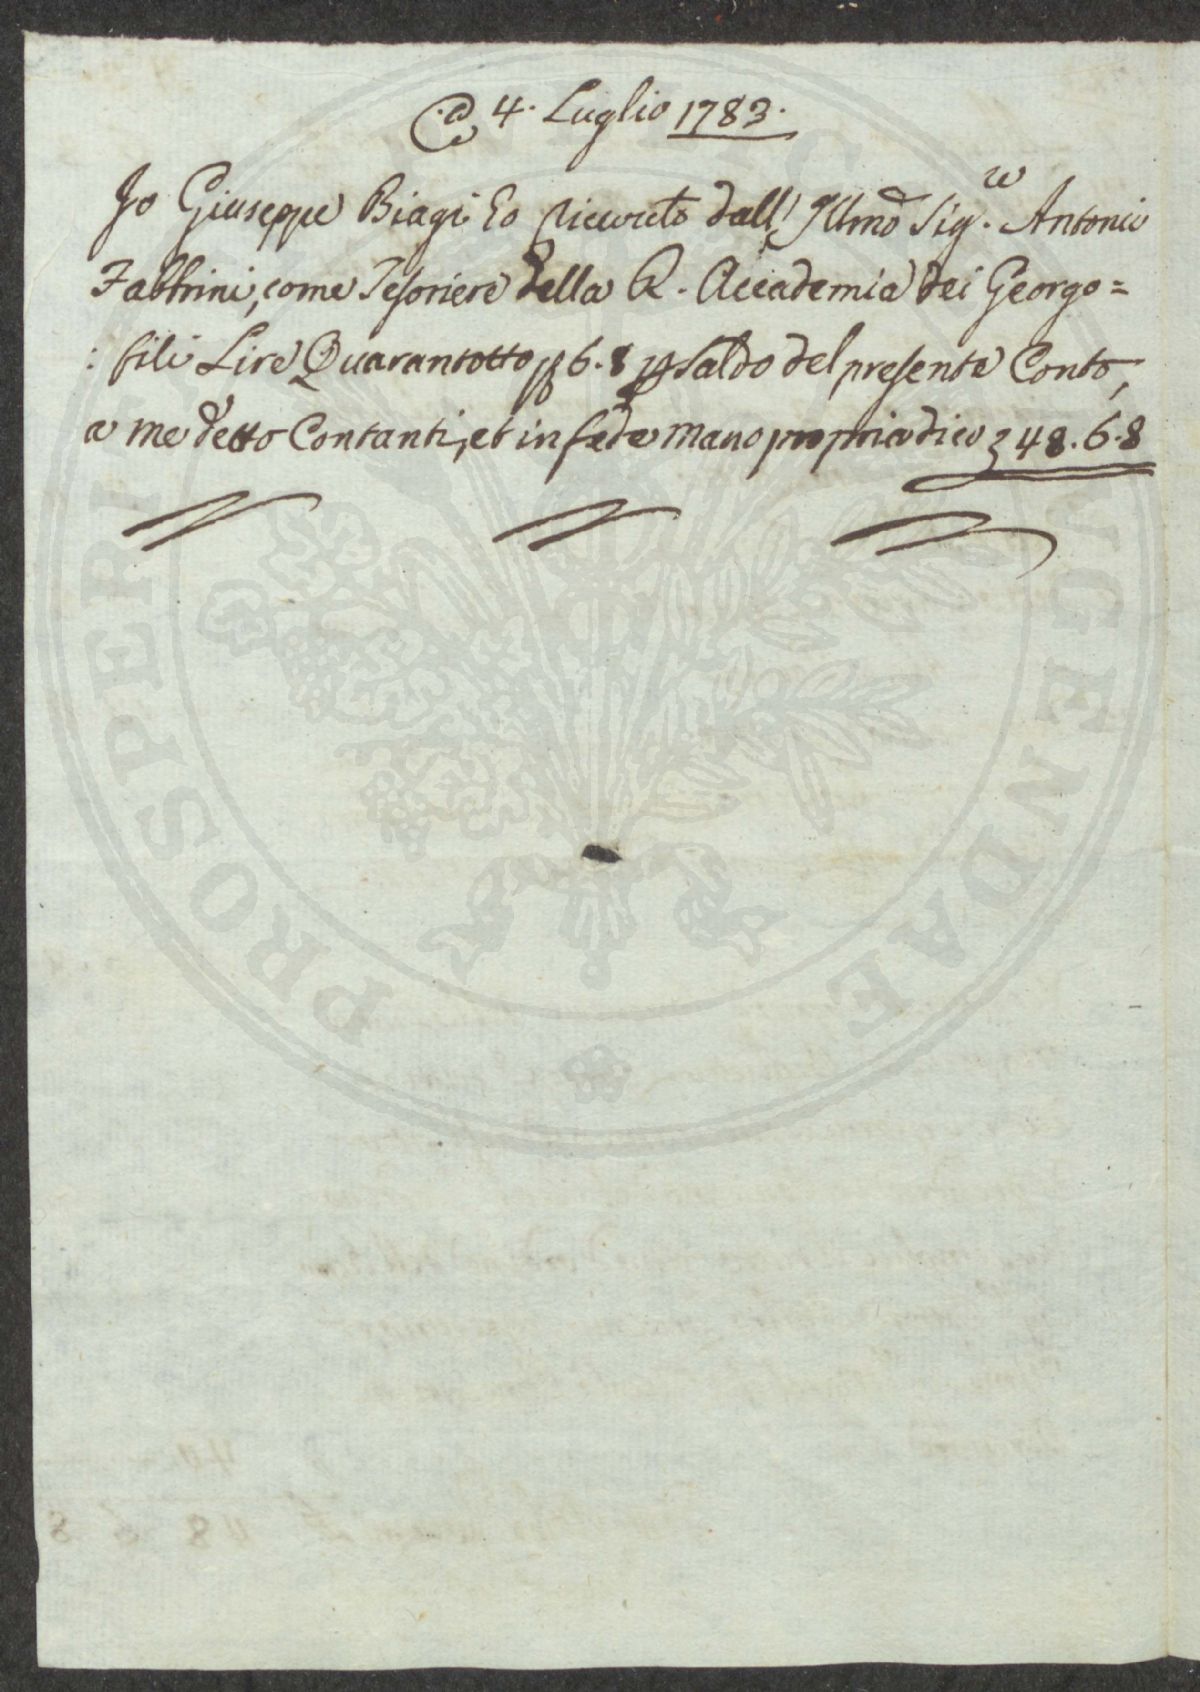 A 4. Luglio 1783.
Io Giuseppe Biagi ho ricevuto dall' Illmo Sig.re Antonio
Fabbrini, come Tesoriere della R. Accademia dei Georgo=
: fili Lire Quarantotto 6.8 p saldo del presente Conto,
a me detto Contanti, et in fede mano propria dico £ 48.6.8
PROSPERI VGENDAE